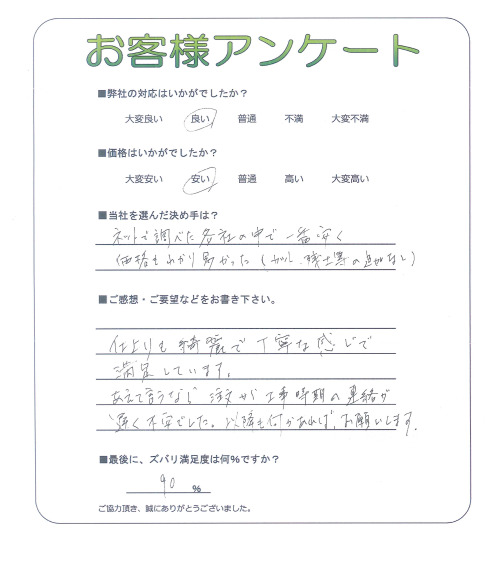 お客様アンケート
■弊社の対応はいかがでしたか？
大変良い 良い 普通 不満 大変不満
■価格はいかがでしたか？
大変安い 安い 普通 高い 大変高い
■当社を選んだ決め手は？
ネットで調べた各社の中で一番安く
価格もわかり易かった(ガソ、残土等の追加なし)
■ご感想・ご要望などをお書き下さい。
仕上りも綺麗で丁寧な感じで
満足しています。
あえて言うなら 注文が工事時期の連絡が
遅く不安でした。以降も何かあれば、お願いします。
■最後に、ズバリ満足度は何％ですか？
90 ％
ご協力頂き、誠にありがとうございました。